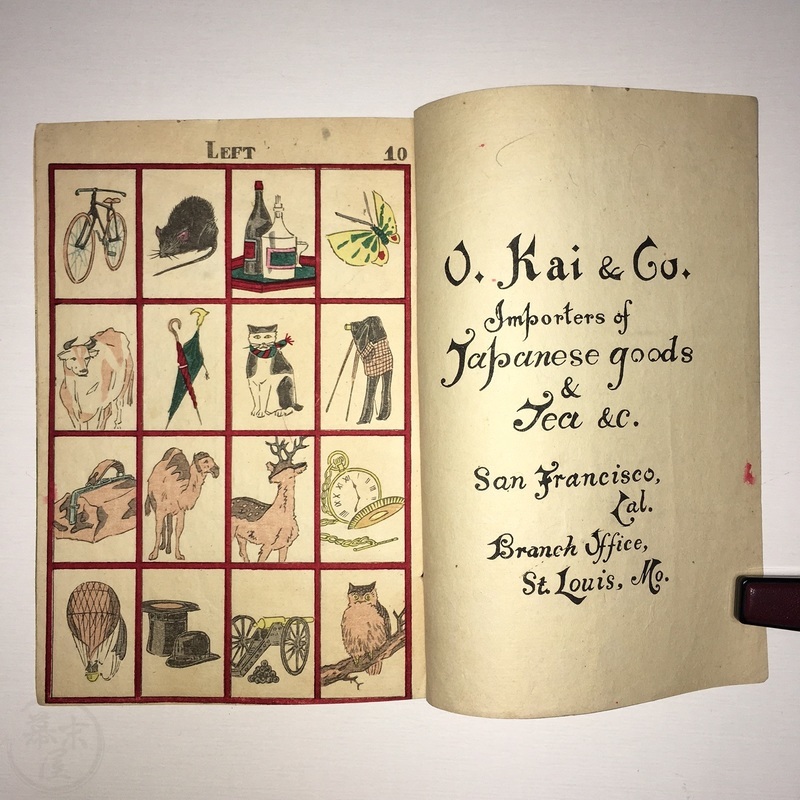 LEFT 10
O. Kai & Co.
Importers of
Japanese goods
&
Tea &c.
San Francisco,
Cal.
Branch Office,
St. Louis, Mo.
幕末屋